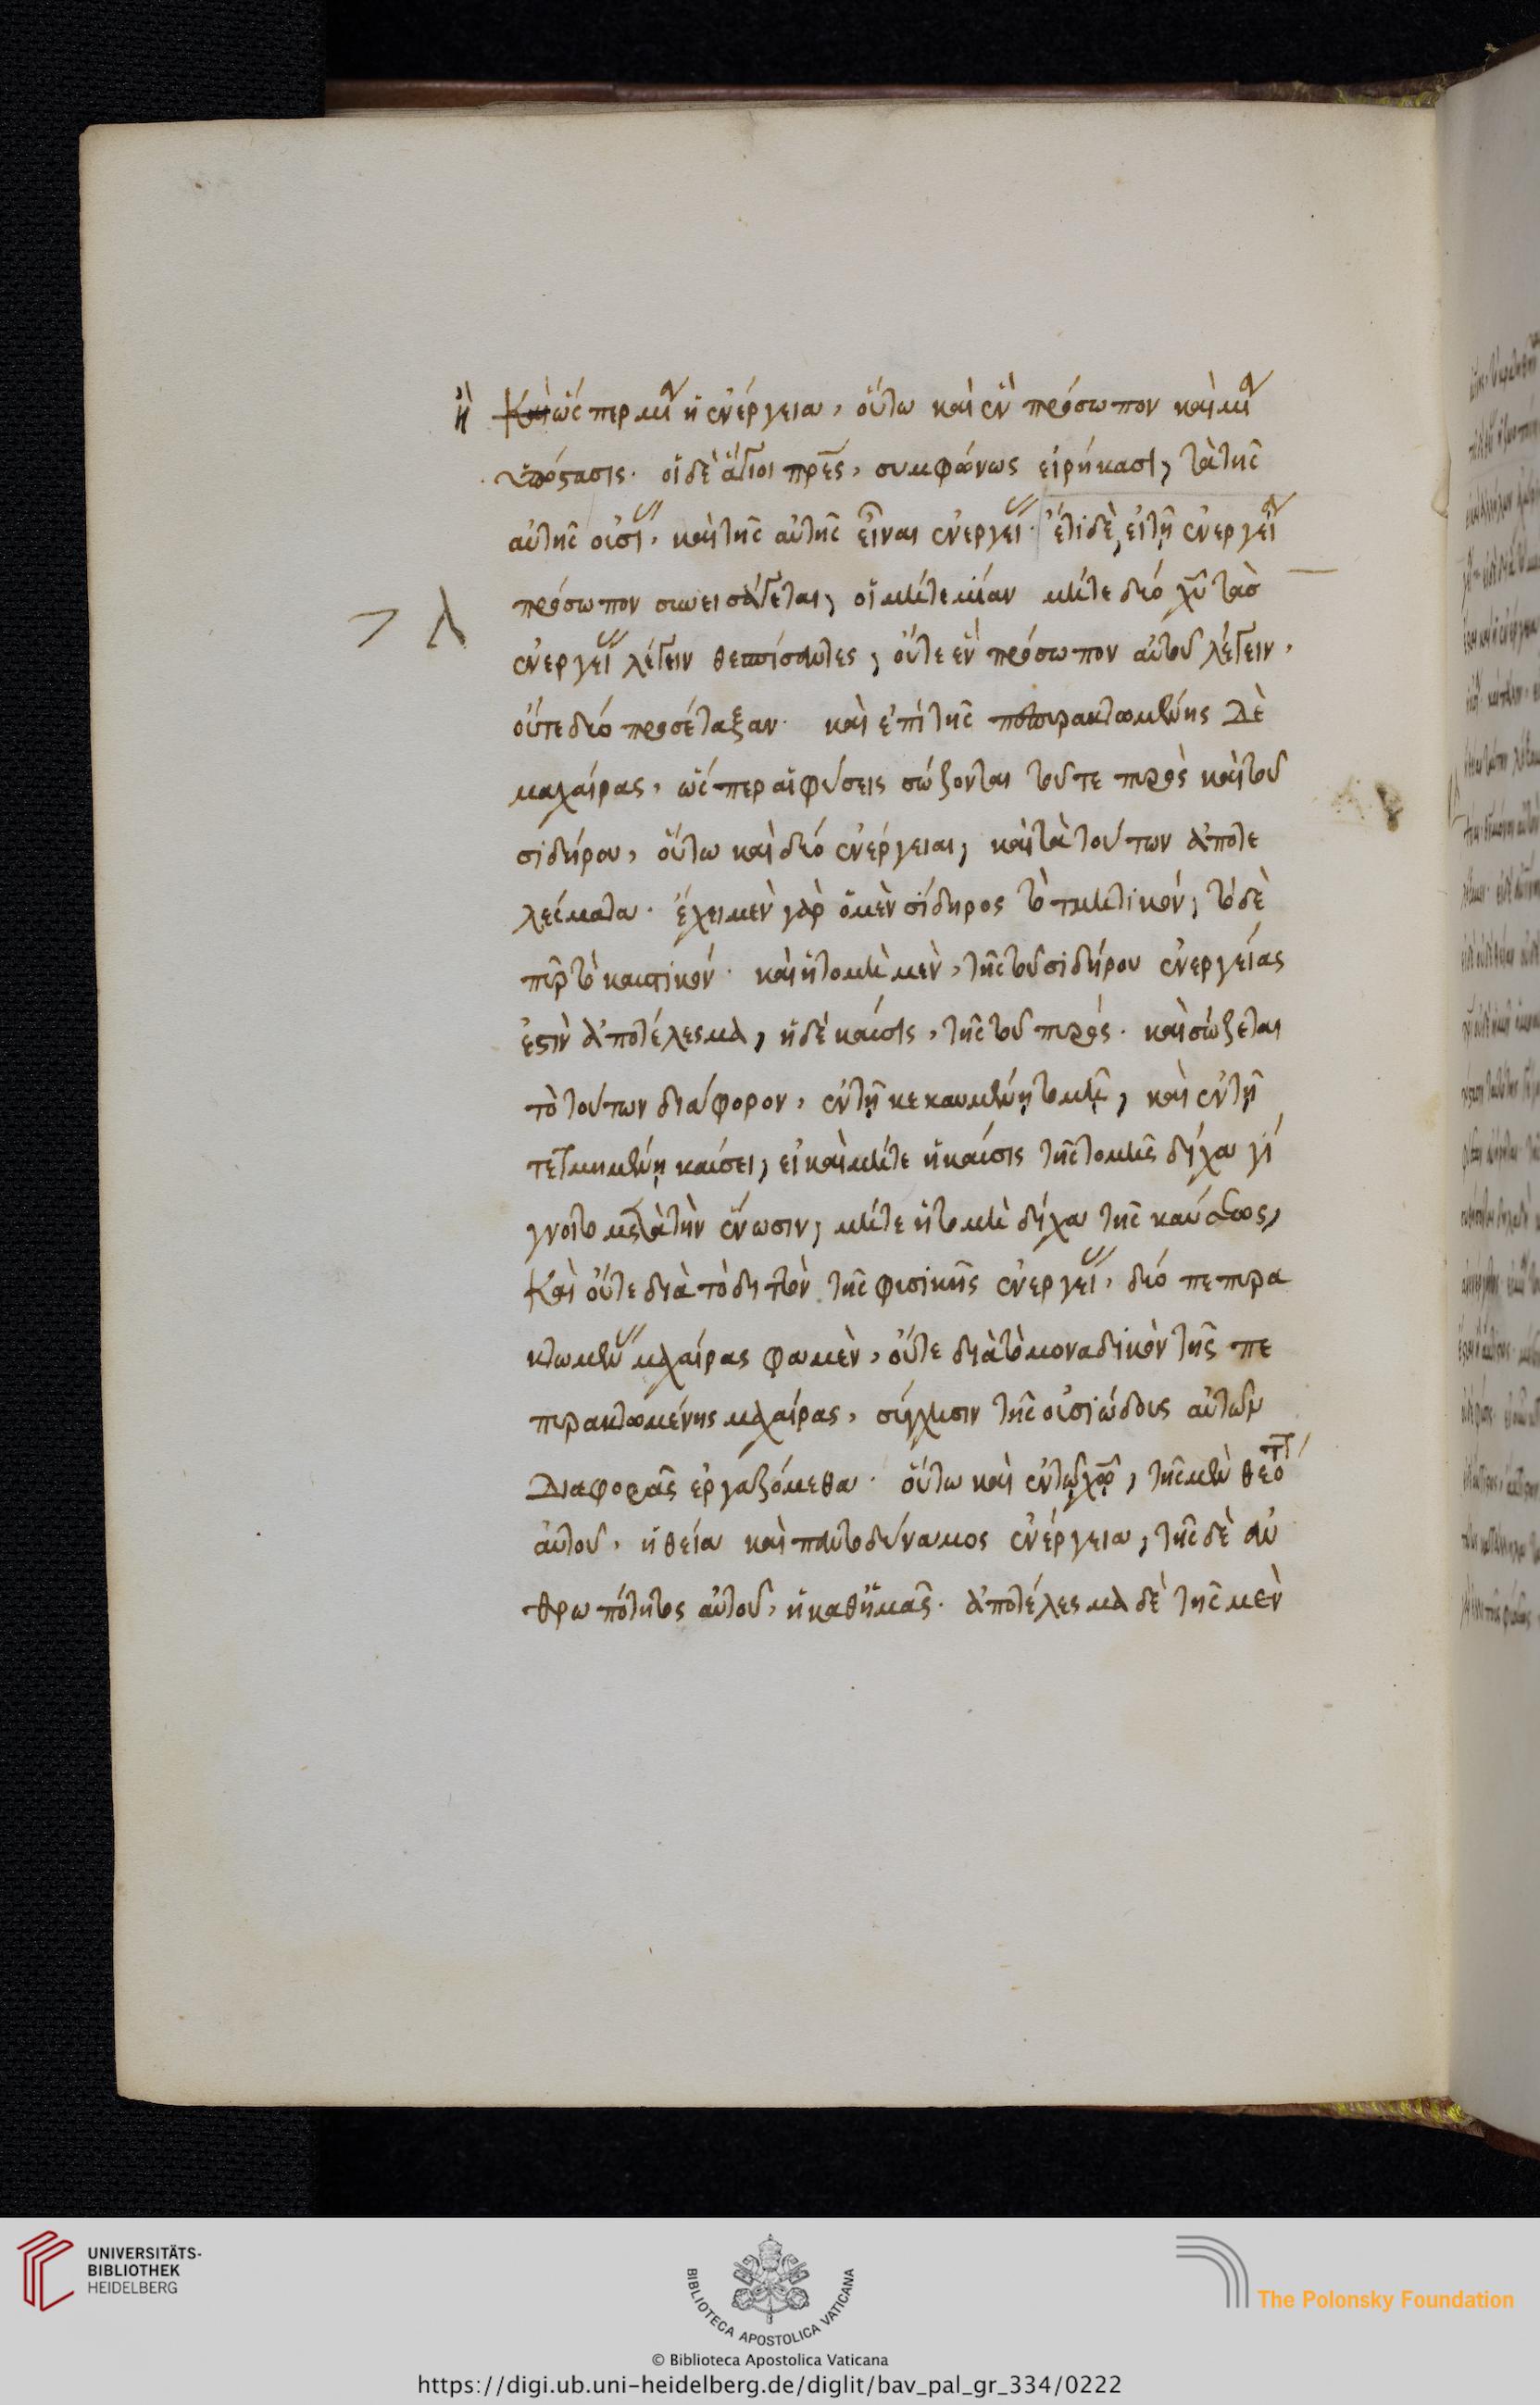 ἢ Καὶ ὥς περ μία ἡ ἐνέργεια, οὕτω καὶ ἓν πρόσωπον καὶ μία
ὑπόστασις. οἱ δὲ ἅγιοι πρες, συμφώνως εἰρήκασι, τὰ τῆς
αὐτῆς οὐσίας, καὶ τῆς αὐτῆς εἶναι ἐνεργείας. ἔτι δὲ, εἰ τῇ ἐνεργείᾳ
πρόσωπον συνεισάγεται, οἱ μήτε μίαν μήτε δύο χυ τὰς
λ
ἐνεργείας λέγειν θεσπίσαντες, οὔτε ἓν πρόσωπον αὐτοῦ λέγειν,
οὔτε δύο προσέταξαν. καὶ ἐπὶ τῆς πεπυρακτωμένης δὲ
μαχαίρας, ὥς περ αἱ φύσεις σώζονται τοῦ τε πυρὸς καὶ τοῦ
σιδήρου, οὕτω καὶ δύο ἐνέργειαι, καὶ τὰ τούτων ἀποτε
λέσματα. ἔχει μὲν γὰρ ὁ μὲν σίδηρος τὸ τμητικόν, τὸ δὲ
πῦρ τὸ καυστικόν. καὶ ἡ τομὴ μὲν, τῆς τοῦ σιδήρου ἐνεργείας
ἐστὶν ἀποτέλεσμα, ἡ δὲ καῦσις, τῆς τοῦ πυρός. καὶ σώζεται
τὸ τούτων διάφορον, ἐν τῇ κεκαυμένῃ τομῇ, καὶ ἐν τῇ
τετμημένῃ καύσει, εἰ καὶ μήτε ἡ καῦσις τῆς τομῆς δίχα γί
γνοιτο μετὰ τὴν ἕνωσιν, μήτε ἡ τομὴ δίχα τῆς καύσεως,
Καὶ οὔτε διὰ τὸ διττὸν τῆς φυσικῆς ἐνεργείας, δύο πεπυρα
κτωμένας μαχαίρας φαμὲν, οὔτε διὰ τὸ μοναδικὸν τῆς πε
πυρακτωμένης μαχαίρας, σύγχυσιν τῆς οὐσιώδους αὐτῶν
Διαφορᾶς ἐργαζόμεθα. οὕτω καὶ ἐν τῷ χῷ, τῆς μὲν θεότητος
αὐτοῦ, ἡ θεία καὶ παντοδύναμος ἐνέργεια, τῆς δὲ ἀν
θρωπότητος αὐτοῦ, ἡ καθ ἡμᾶς. ἀποτέλεσμα δὲ τῆς μὲν
UNIVERSITÄTS-
BIBLIOTHEK
HEIDELBERG
BIBLIOTECA APOSTOLICA VATICANA
The Polonsky Foundation
© Biblioteca Apostolica Vaticana
https://digi.ub.uni-heidelberg.de/diglit/bav_pal_gr_334/0222